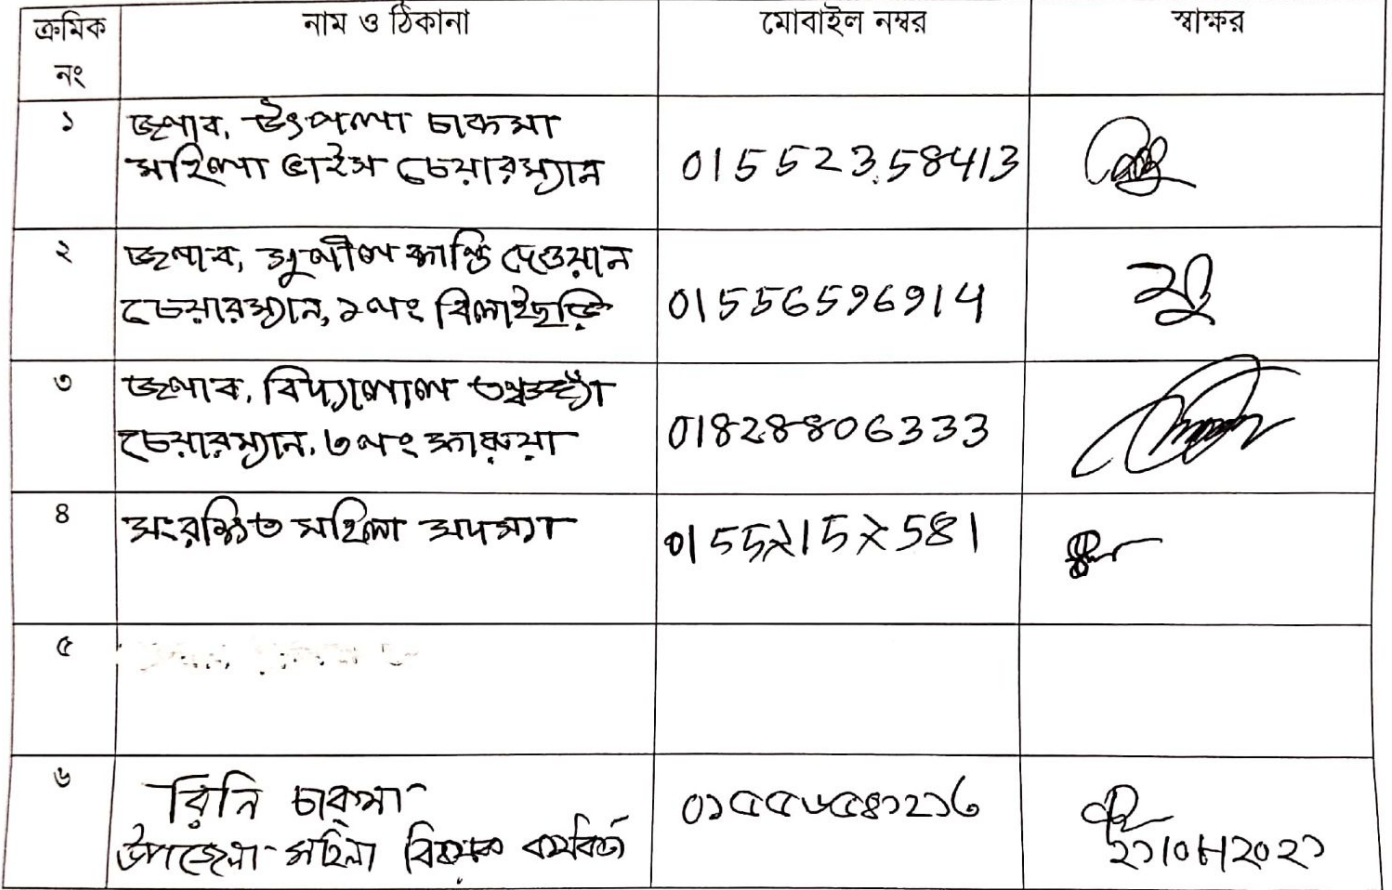 ক্রমিক নং
নাম ও ঠিকানা
মোবাইল নম্বর
স্বাক্ষর
১
জনাব, উৎপলা চাকমা
মহিলা ভাইস চেয়ারম্যান
01552358413
২
জনাব, সুনীল কান্তি দেওয়ান
চেয়ারম্যান, ১নং বিলাইছড়ি
01556596914
৩
জনাব, বিদ্যালাল তঞ্চঙ্গ্যাঁ
চেয়ারম্যান, ৩নং ফারুয়া
01828806333
৪
সংরক্ষিত মহিলা সদস্যা
0155২15২581
৫
৬
রিনি চাক্‌মা
উপজেলা মহিলা বিষয়ক কর্মকর্তা